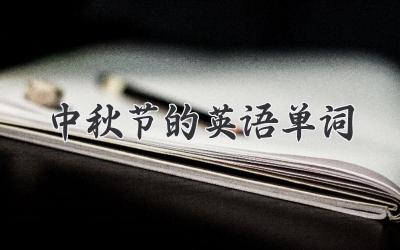 中秋节的英语单词